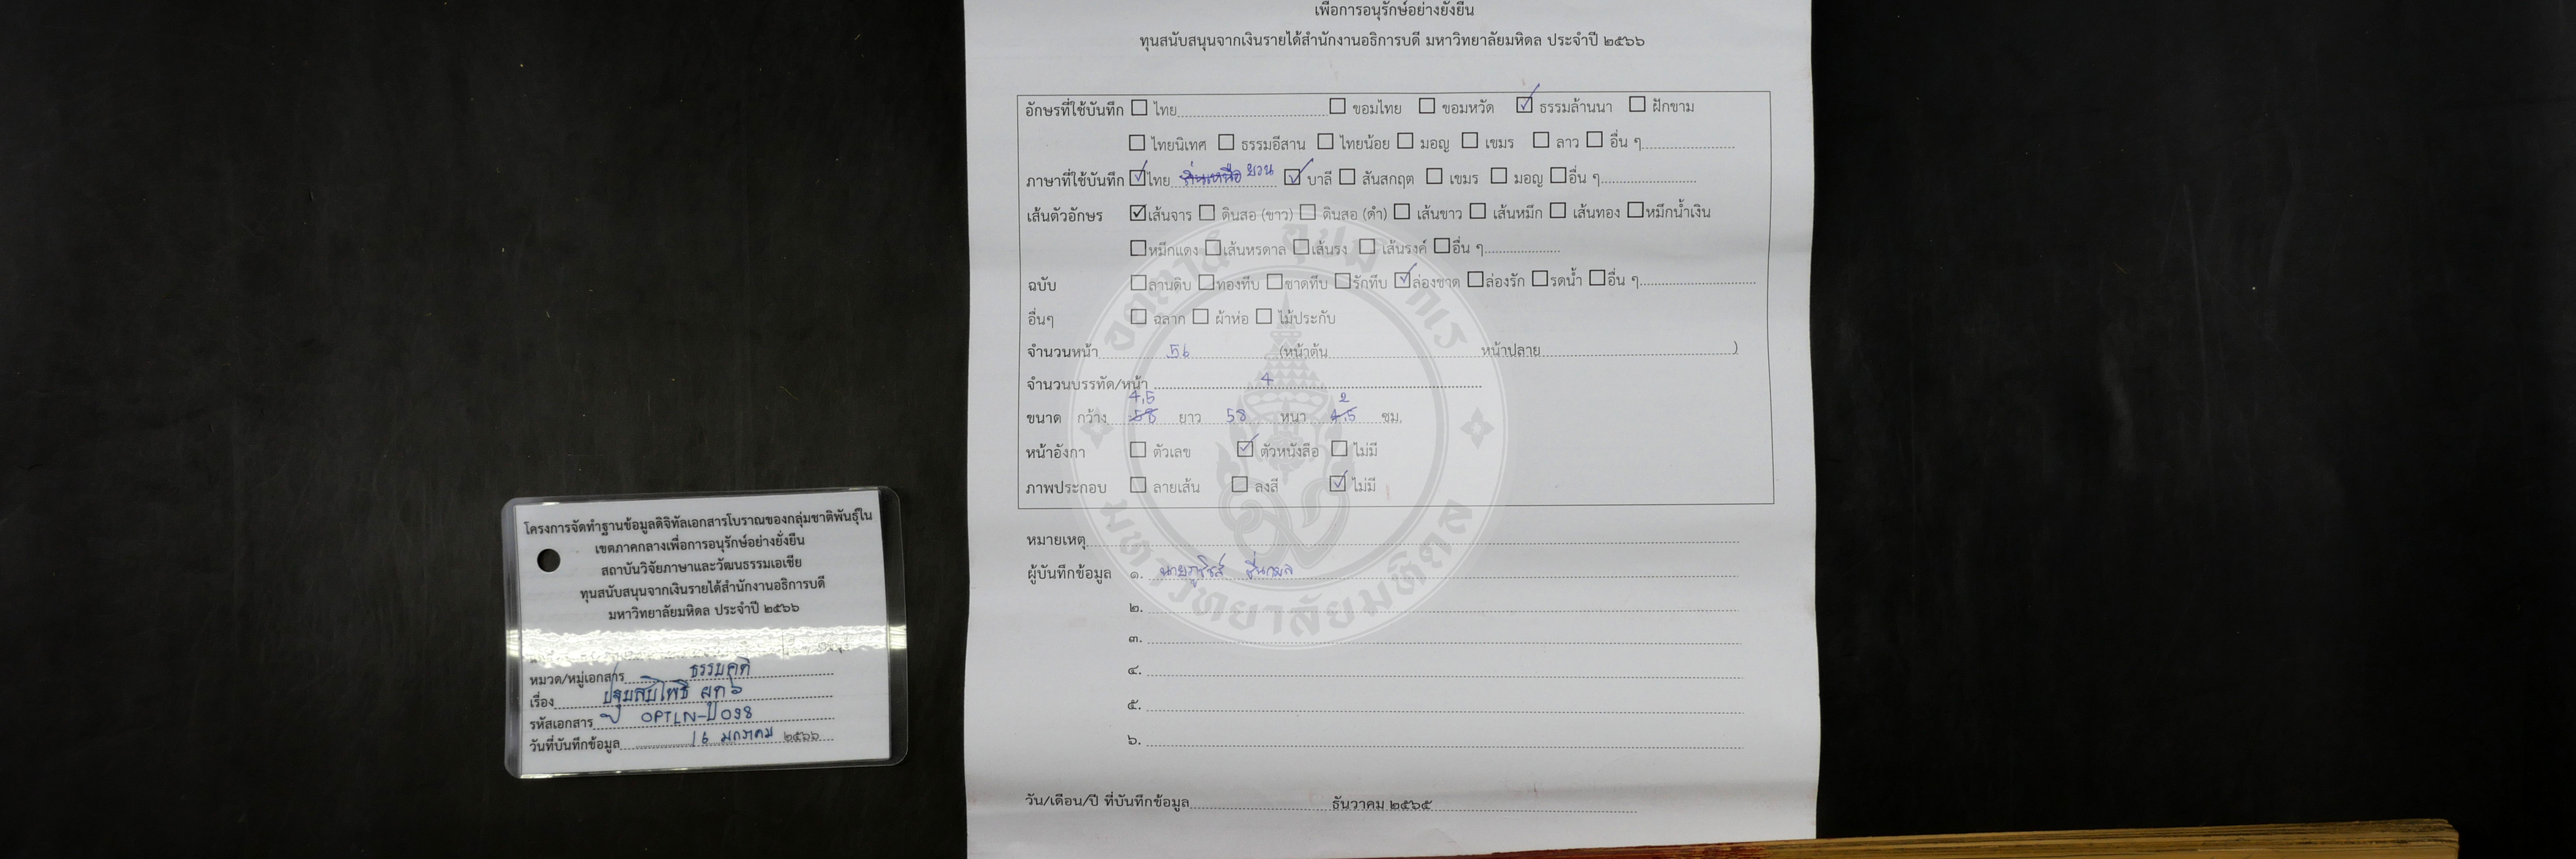 เพื่อการอนุรักษ์อย่างยั่งยืน
ทุนสนับสนุนจากเงินรายได้สำนักงานอธิการบดี มหาวิทยาลัยมหิดล ประจำปี ๒๕๖๖
อักษรที่ใช้บันทึก ☐ ไทย ☐ ขอมไทย ☐ ขอมหวัด ☑ ธรรมล้านนา ☐ ฝักขาม
☐ ไทยนิเทศ ☐ ธรรมอีสาน ☐ ไทยน้อย ☐ มอญ ☐ เขมร ☐ ลาว ☐ อื่น ๆ
ภาษาที่ใช้บันทึก ☑ ไทย ยวน ☑ บาลี ☐ สันสกฤต ☐ เขมร ☐ มอญ ☐ อื่น ๆ
เส้นตัวอักษร ☑ เส้นจาร ☐ ดินสอ (ขาว) ☐ ดินสอ (ดำ) ☐ เส้นขาว ☐ เส้นหมึก ☐ เส้นทอง ☐ หมึกน้ำเงิน
☐ หมึกแดง ☐ เส้นหรดาล ☐ เส้นรง ☐ เส้นรงค์ ☐ อื่น ๆ
ฉบับ ☐ ลานดิบ ☐ ทองทึบ ☐ ชาดทึบ ☐ รักทึบ ☑ ล่องชาด ☐ ล่องรัก ☐ รดน้ำ ☐ อื่น ๆ
อื่นๆ ☐ ฉลาก ☐ ผ้าห่อ ☐ ไม้ประกับ
จำนวนหน้า 56 (หน้าต้น หน้าปลาย )
จำนวนบรรทัด/หน้า 4
ขนาด กว้าง 58 4,5 ยาว 58 หนา 4,5 2 ซม.
หน้าอังกา ☐ ตัวเลข ☑ ตัวหนังสือ ☐ ไม่มี
ภาพประกอบ ☐ ลายเส้น ☐ ลงสี ☑ ไม่มี
หมายเหตุ
ผู้บันทึกข้อมูล ๑. ชื่นกมล
๒.
๓.
๔.
๕.
๖.
วัน/เดือน/ปี ที่บันทึกข้อมูล ธันวาคม ๒๕๖๕
มหาวิทยาลัยมหิดล
โครงการจัดทำฐานข้อมูลดิจิทัลเอกสารโบราณของกลุ่มชาติพันธุ์ใน
เขตภาคกลางเพื่อการอนุรักษ์อย่างยั่งยืน
สถาบันวิจัยภาษาและวัฒนธรรมเอเชีย
ทุนสนับสนุนจากเงินรายได้สำนักงานอธิการบดี
มหาวิทยาลัยมหิดล ประจำปี ๒๕๖๖
หมวด/หมู่เอกสาร ธรรมคดี
เรื่อง ปฐมสมโพธิ ผูก ๖
รหัสเอกสาร OPTLN-ป 098
วันที่บันทึกข้อมูล 16 มกราคม ๒๕๖๖